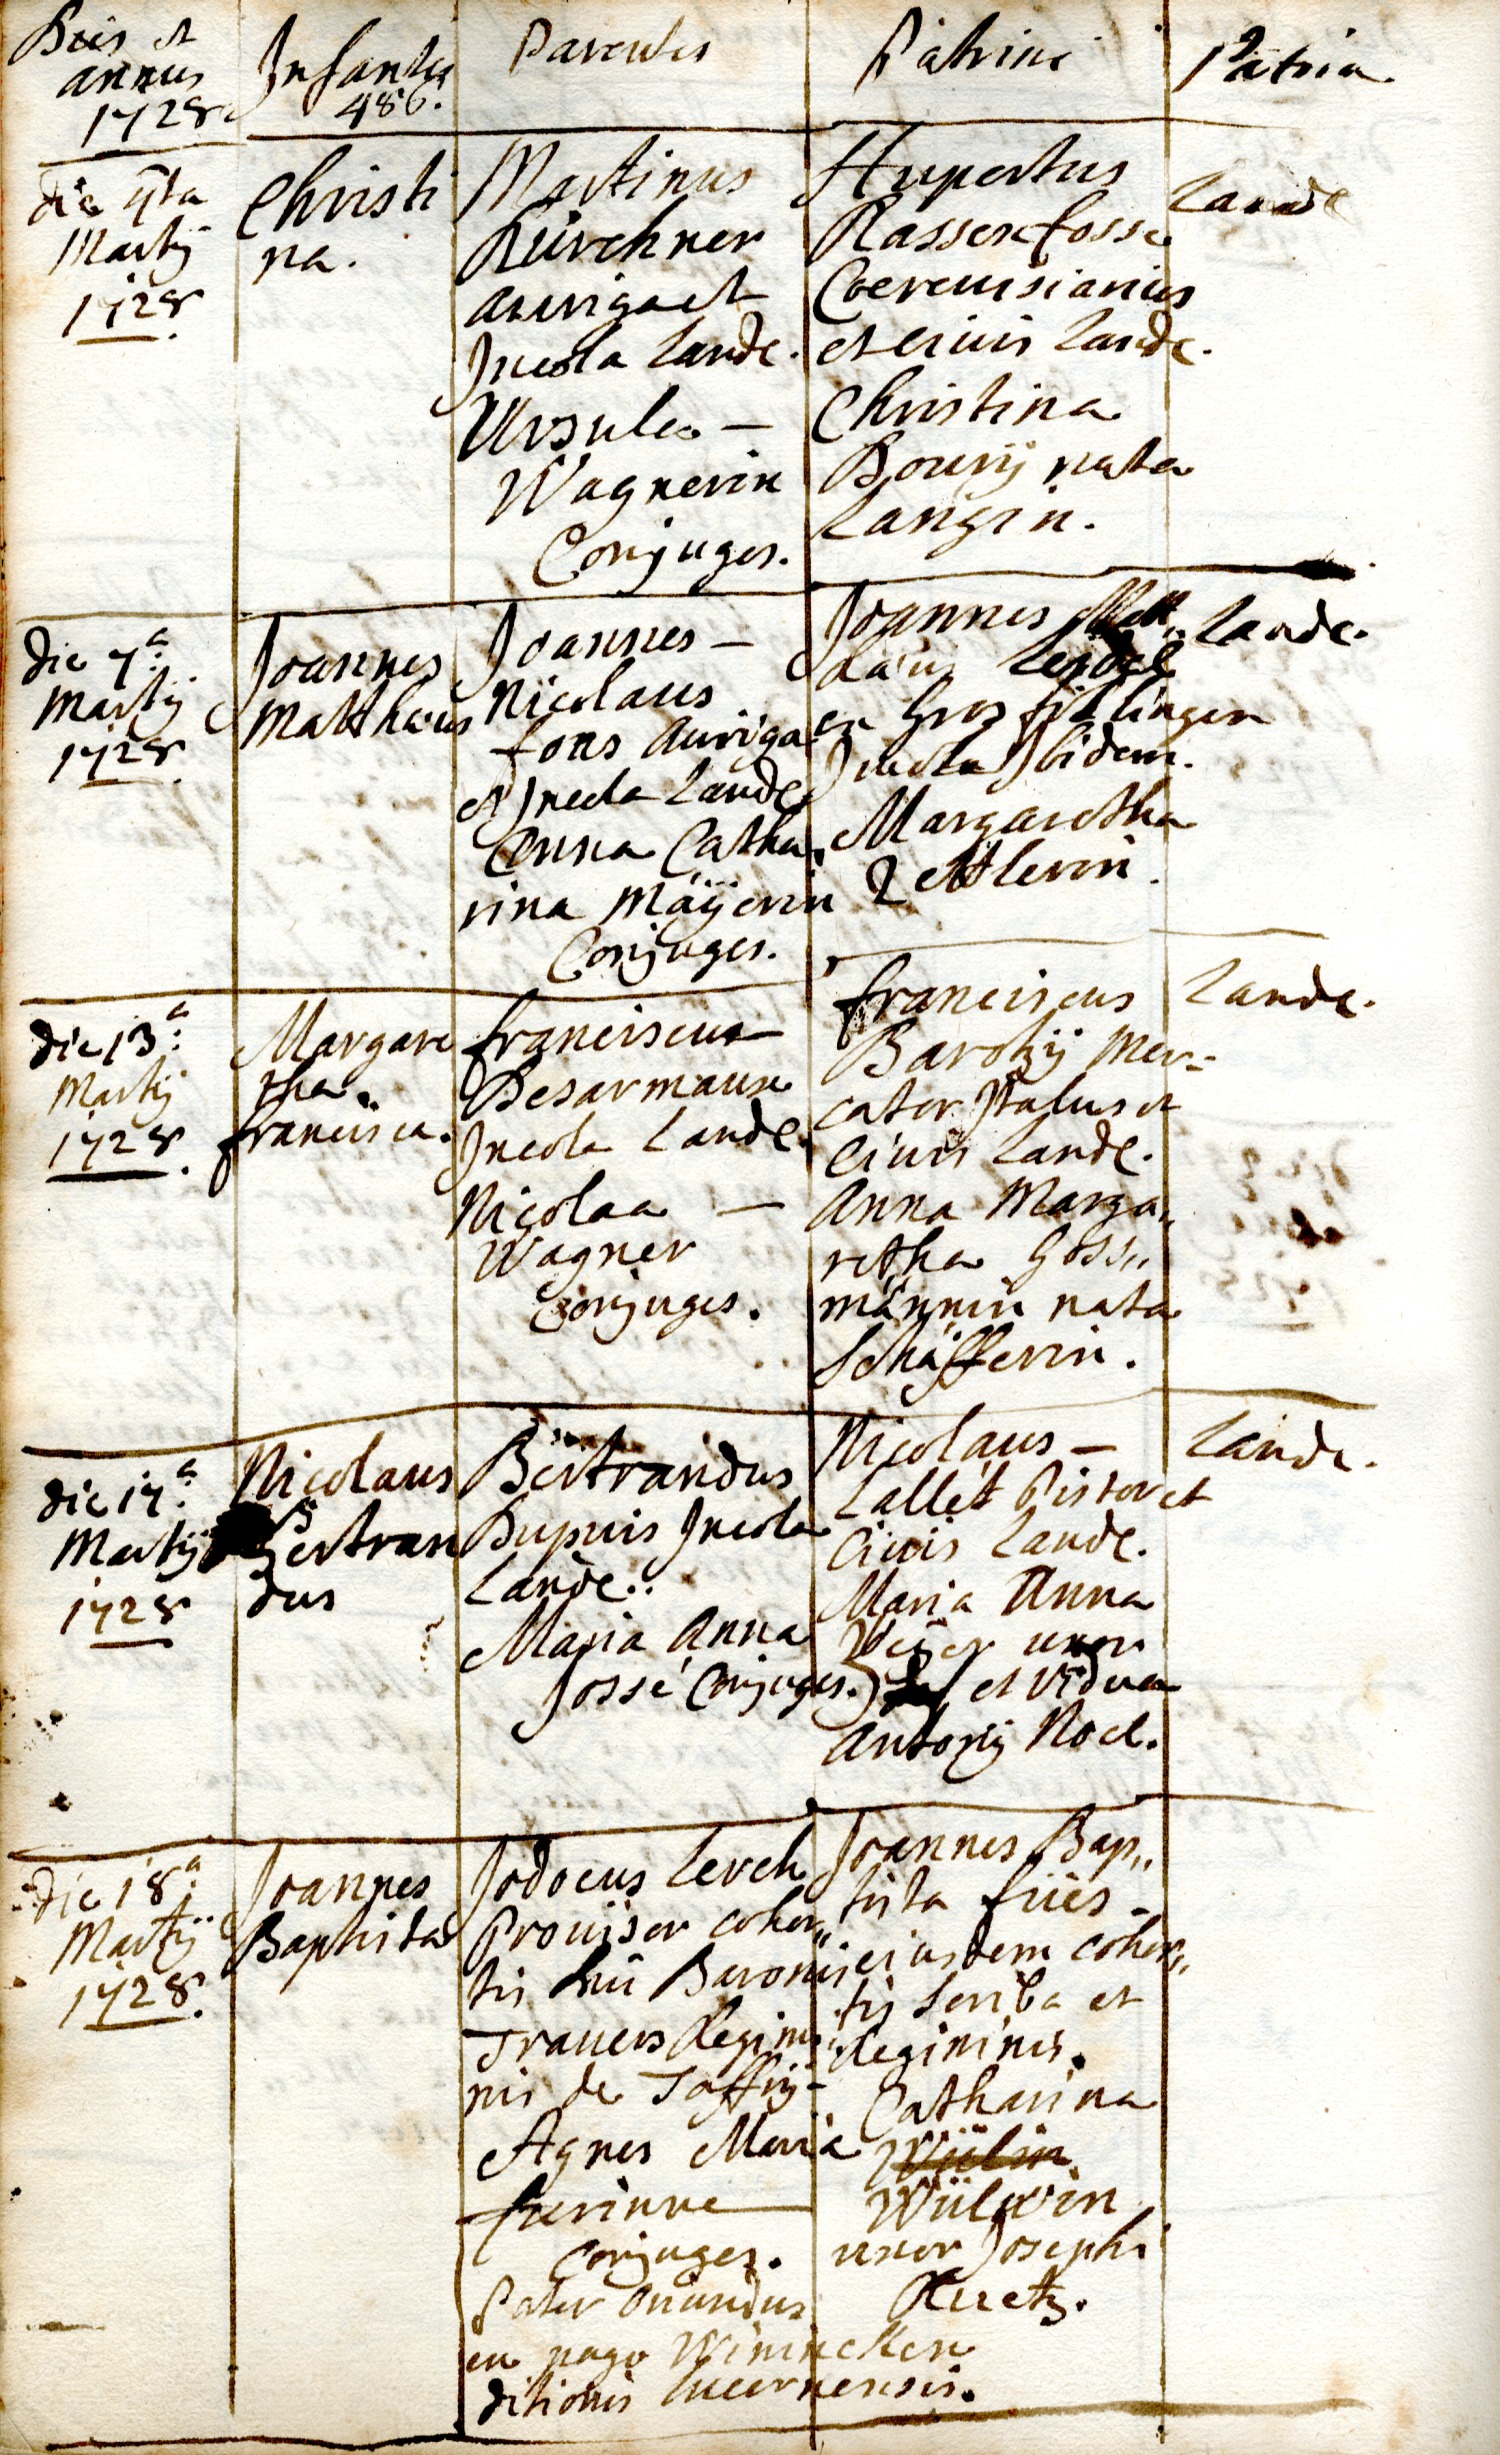 Dies et
annus
1728.
Infantes
486.
Parentes
Patrini
Patria
die 4ta
Martij
1728.
Christi
na.
Martinus
Kürchner
auriga et
Incola Landę.
Ursula –
Wagnerin
Conjuges.
Hupertus
Rassenfosse
Coereuisiarius
et ciuis Landę.
Christina
Bourij nata
Langin.
Landę
die 7ª
Martij
1728.
Joannes
Matthaeus
Joannes –
Nicolaus
fons Auriga
et Incola Landę
Anna Catha„
rina Mäÿerin
Conjuges.
Joannes
ex
Incola Ibidem.
Margaretha
Zettlerin.
Landę.
die 13ª
Martij
1728.
Margare
tha
francisca.
franciscus
Desarmaux
Incola Landę.
Nicolaa –
Wagner
Conjuges.
franciscus
Barozij Mer=
cator Italus et
Ciuis Landę.
Anna Marga„
retha Goss„
männin nata
Schäfferin.
Landę.
die 17ª
Martij
1728
Nicolaus
Bertran
dus
Bertrandus
Dupuis Incola
Landę.
Maria Anna
Jossé Conjuges.
Nicolaus –
Lallet Pistor et
Ciuis Landę.
Maria Anna
uxor
et Vidua
Antonij Noel.
Landę.
die 18ª
Martij
1728.
Joannes
Baptista
Jodocus Lerch
Prouisor cohor„
tis Dnï Baronis
Trauers Regimi„
nis de
Agnes Maria
Conjuges.
Pater oriundus
ex pago Winincken
ditionis Lucernensis.
Joannes Bap„
tista fües –
eiusdem cohor„
tis Scriba et
Regiminis.
Catharina
Wülwin
uxor Josephi
Kuetz.